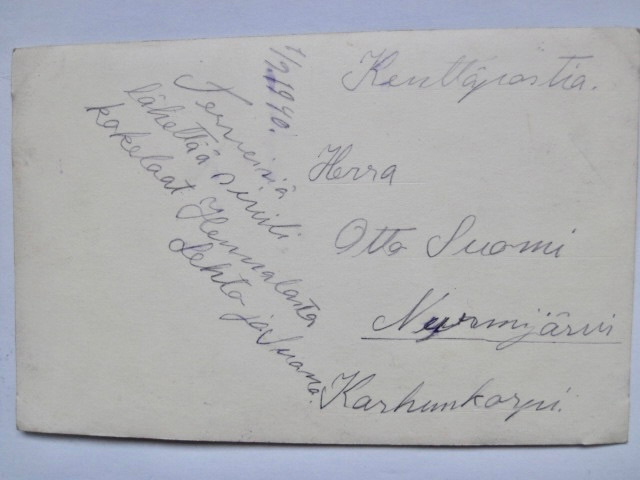 1/2 1940.
Terveisiä
lähettää sinulle
kokelaat Hennalasta
Lehto ja Suoma.
Kenttäpostia.
Herra
Otto Suomi
Nurmijärvi
Karhunkorpi.